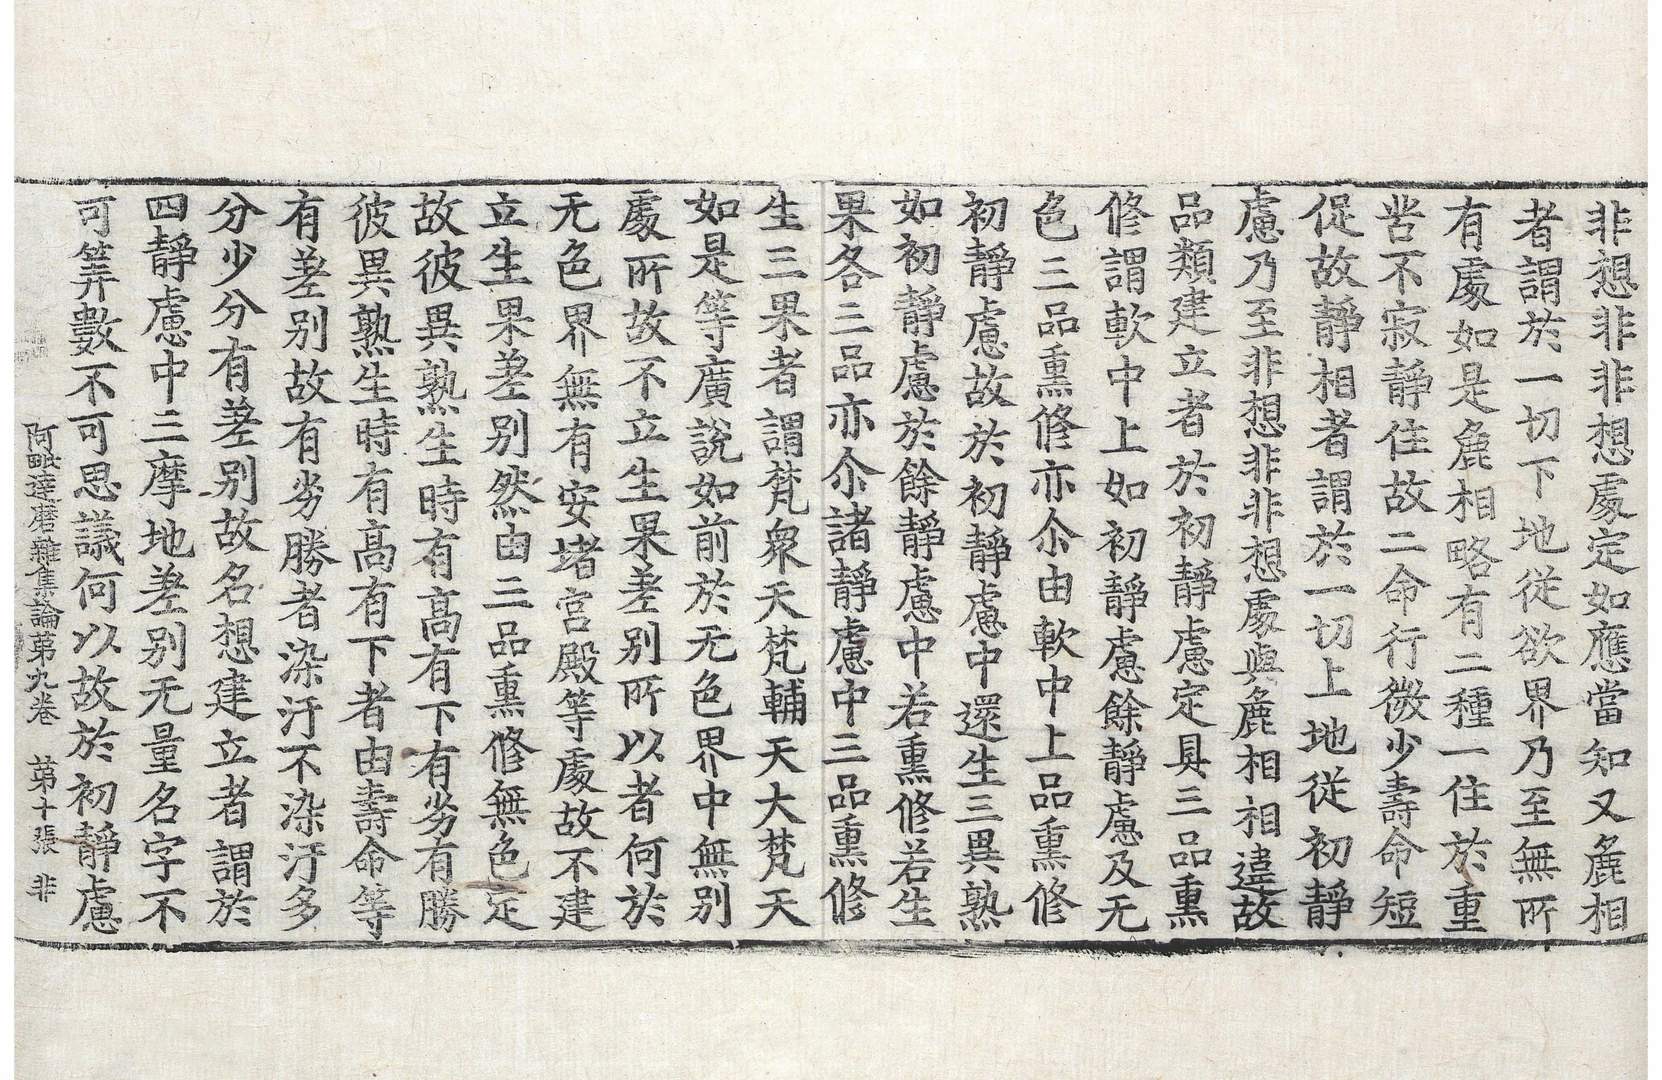 非想非非想處定如應當知又麁相
者謂於一切下地從欲界乃至無所
有處如是麁相略有二種一住於重
苦不寂靜住故二命行微少壽命短
促故靜相者謂於一切上地從初靜
慮乃至非想非非想處與麁相相違故
品類建立者於初靜慮定具三品熏
修謂軟中上如初靜慮餘靜慮及无
色三品熏修亦尒由軟中上品熏修
初靜慮故於初靜慮中還生三異熟
如初靜慮於餘靜慮中若熏修若生
果各三品亦尒諸靜慮中三品熏修
生三果者謂梵衆天梵輔天大梵天
如是等廣說如前於无色界中無別
處所故不立生果差別所以者何於
无色界無有安堵宮殿等處故不建
立生果差別然由三品熏修無色定
故彼異熟生時有高有下有劣有勝
彼異熟生時有高有下者由壽命等
有差別故有劣勝者染汙不染汙多
分少分有差別故名想建立者謂於
四靜慮中三摩地差別无量名字不
可筭數不可思議何以故於初靜慮
阿毗達磨雜集論苐九卷 苐十張 非